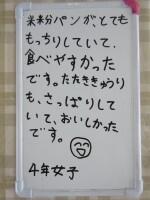 米粉パンが、とても
もっちりしていて、
食べやすかった
です。たたききゅうり
も、さっぱりして
いて、おいしかった
です。
4年女子